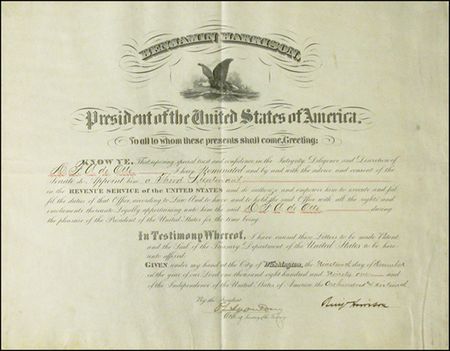 BENJAMIN HARRISON,
President of the United States of America.
To all to whom these presents shall come, Greeting:
KNOW YE, That reposing special trust and confidence in the Integrity, Diligence and Discretion of
I have Nominated and by and with the advice and consent of the
Senate do Appoint him a Third Lieutenant
in the REVENUE SERVICE of the UNITED STATES and do authorize and empower him to execute and ful
fil the duties of that Office, according to Law: And to have and to hold the said Office with all the rights and
emoluments thereunto Legally appertaining unto him the said during
the pleasure of the President of the United States for the time being.
In Testimony Whereof, I have caused these Letters to be made Patent
and the Seal of the Treasury Department of the United States to be here
unto affixed.
GIVEN under my hand at the City of Washington, the Nineteenth day of November
in the year of our Lord one thousand eight hundred and Ninety one and
of the Independence of the United States of America the One hundred and Sixteenth
By the President
Secretary of the Treasury
Benj Harrison